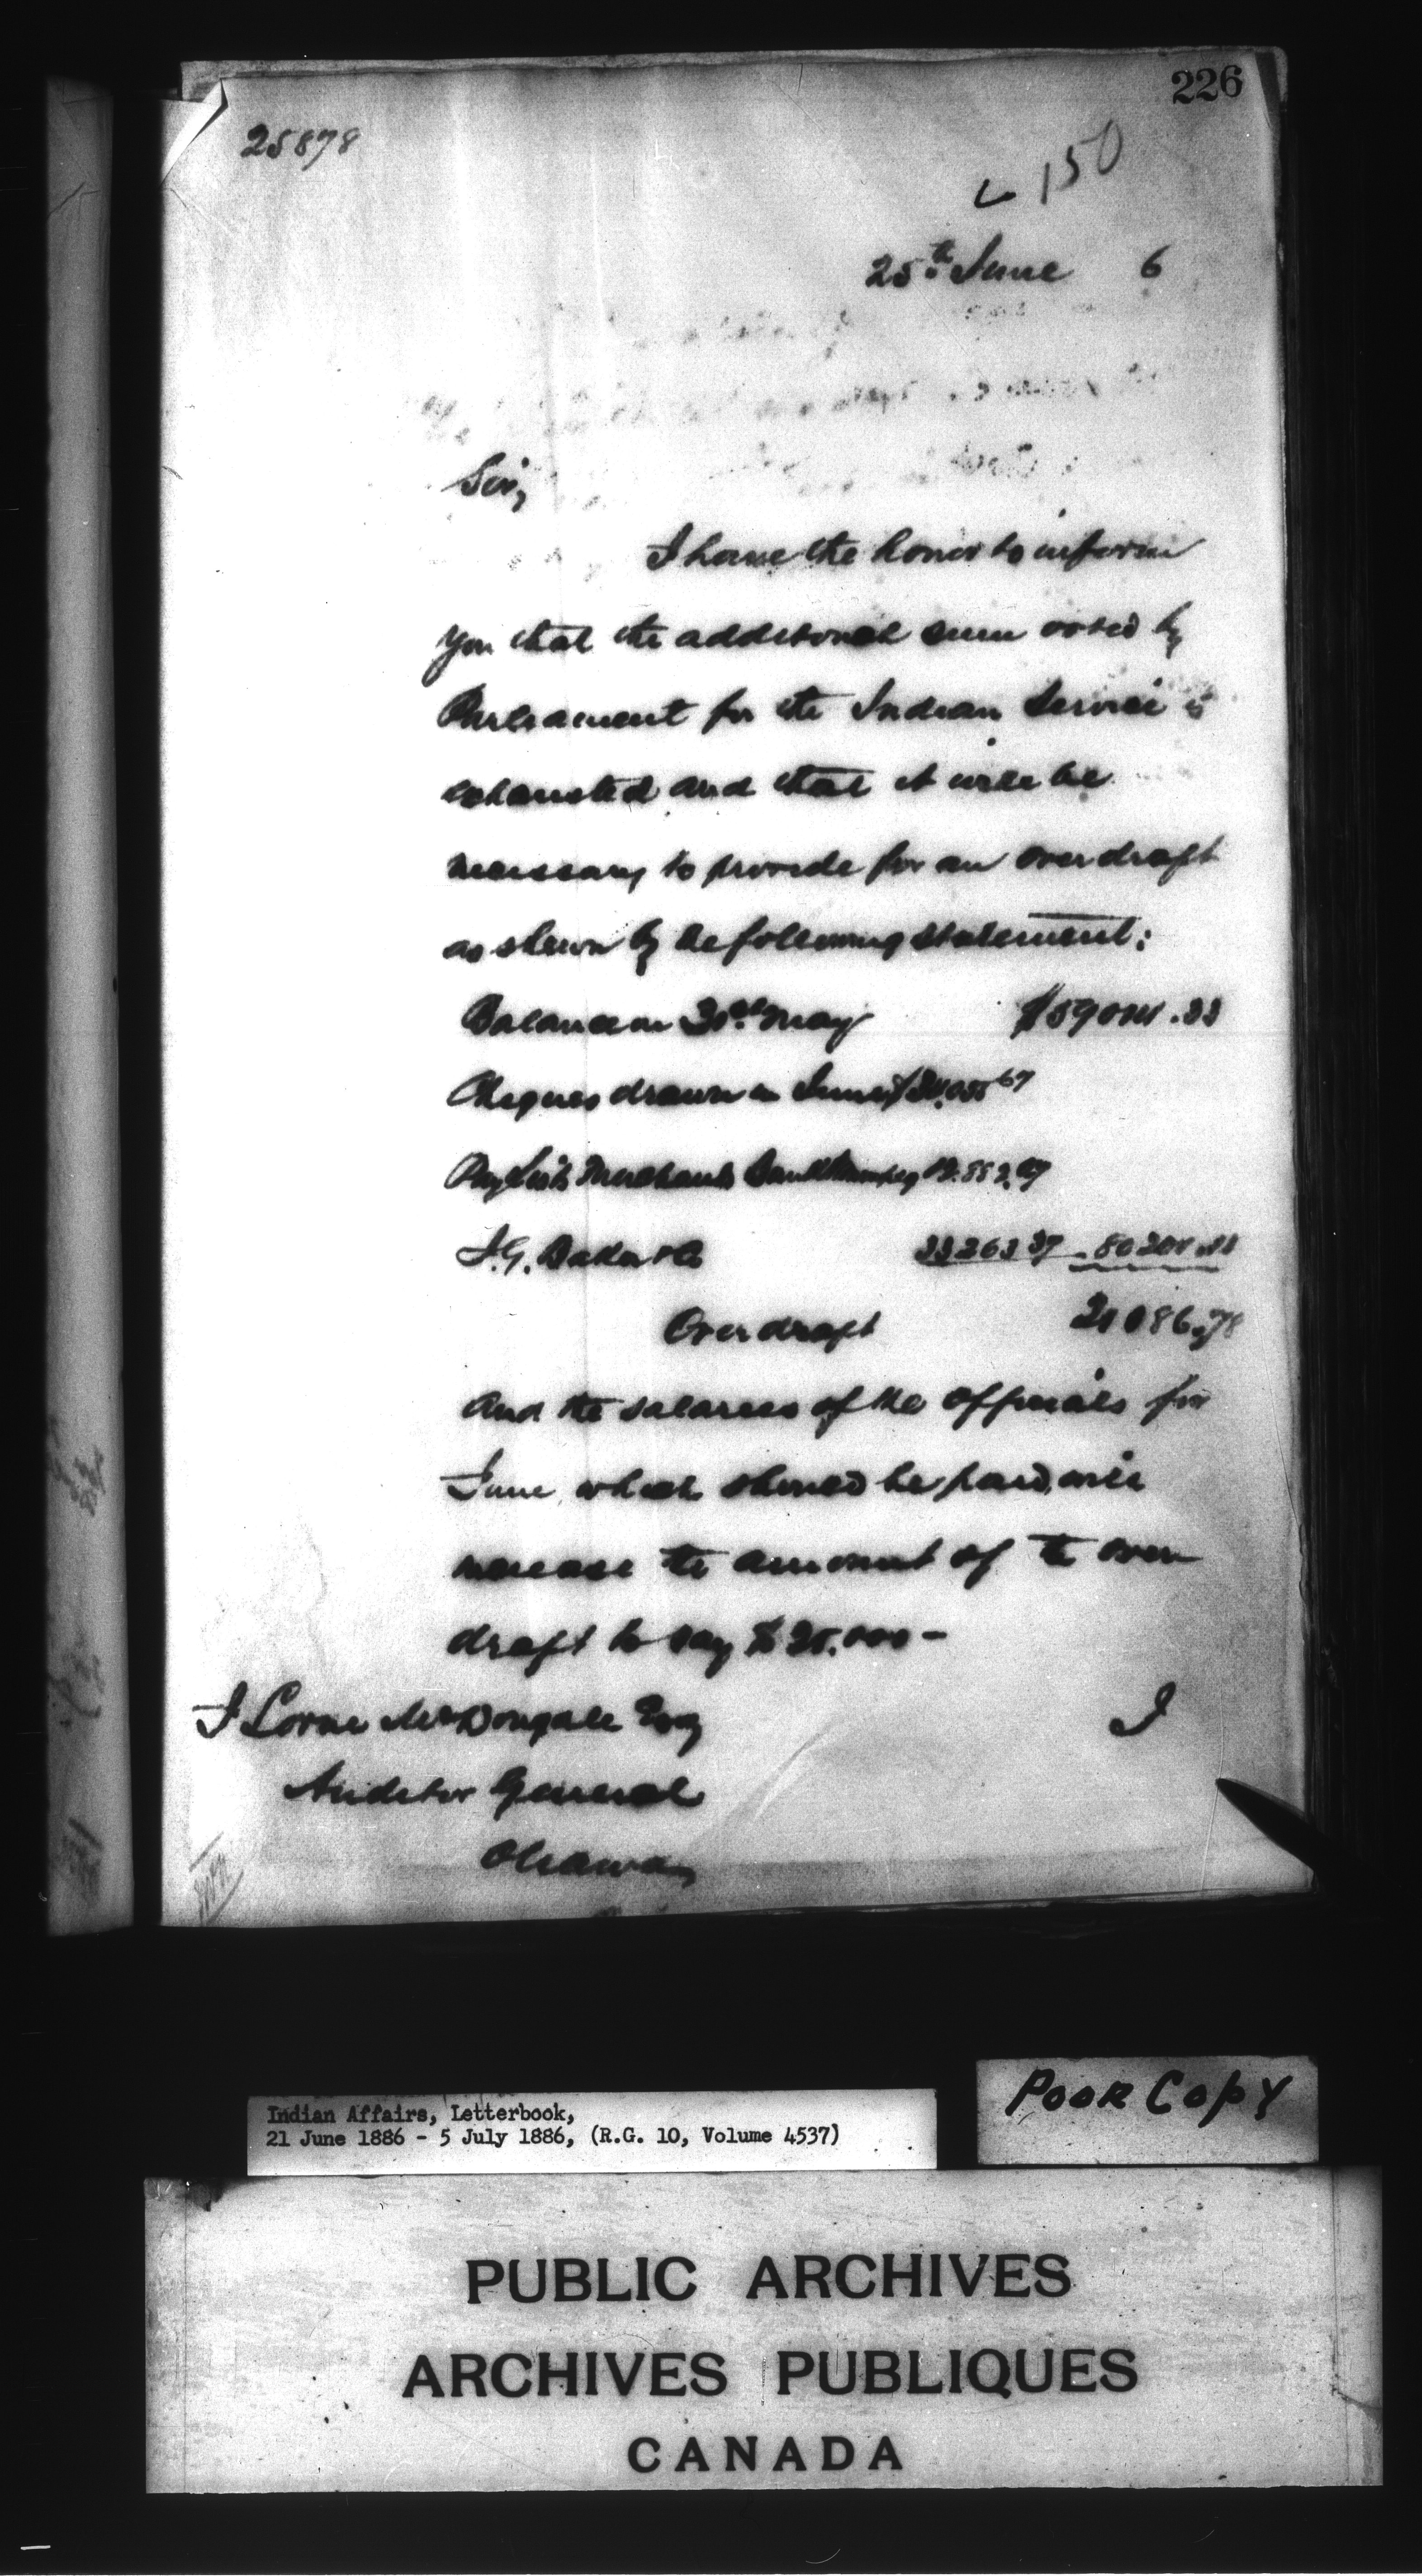 226
25878
L 150
25th June 6
Sir,
I have the honor to inform
you that the additional sum voted by
Parliament for the Indian Service is
exhausted and that it will be
necessary to provide for an over draft
as shewn by the following statement:
Balance on 31st May $59 .33
Cheques drawn in June
Pay Lists Merchants Bank Winnipeg
I.G. Baker & Co 33263 37
Over draft 21086.78
And the salaries of the officials for
June, which should be paid, will
increase the amount of the over
draft to say $25.000 -
J Lorne McDougall Esq
Auditor General
Ottawa
I
Indian Affairs, Letterbook,
21 June 1886 - 5 July 1886, (R.G. 10, Volume 4537)
Poor Copy
PUBLIC ARCHIVES
ARCHIVES PUBLIQUES
CANADA